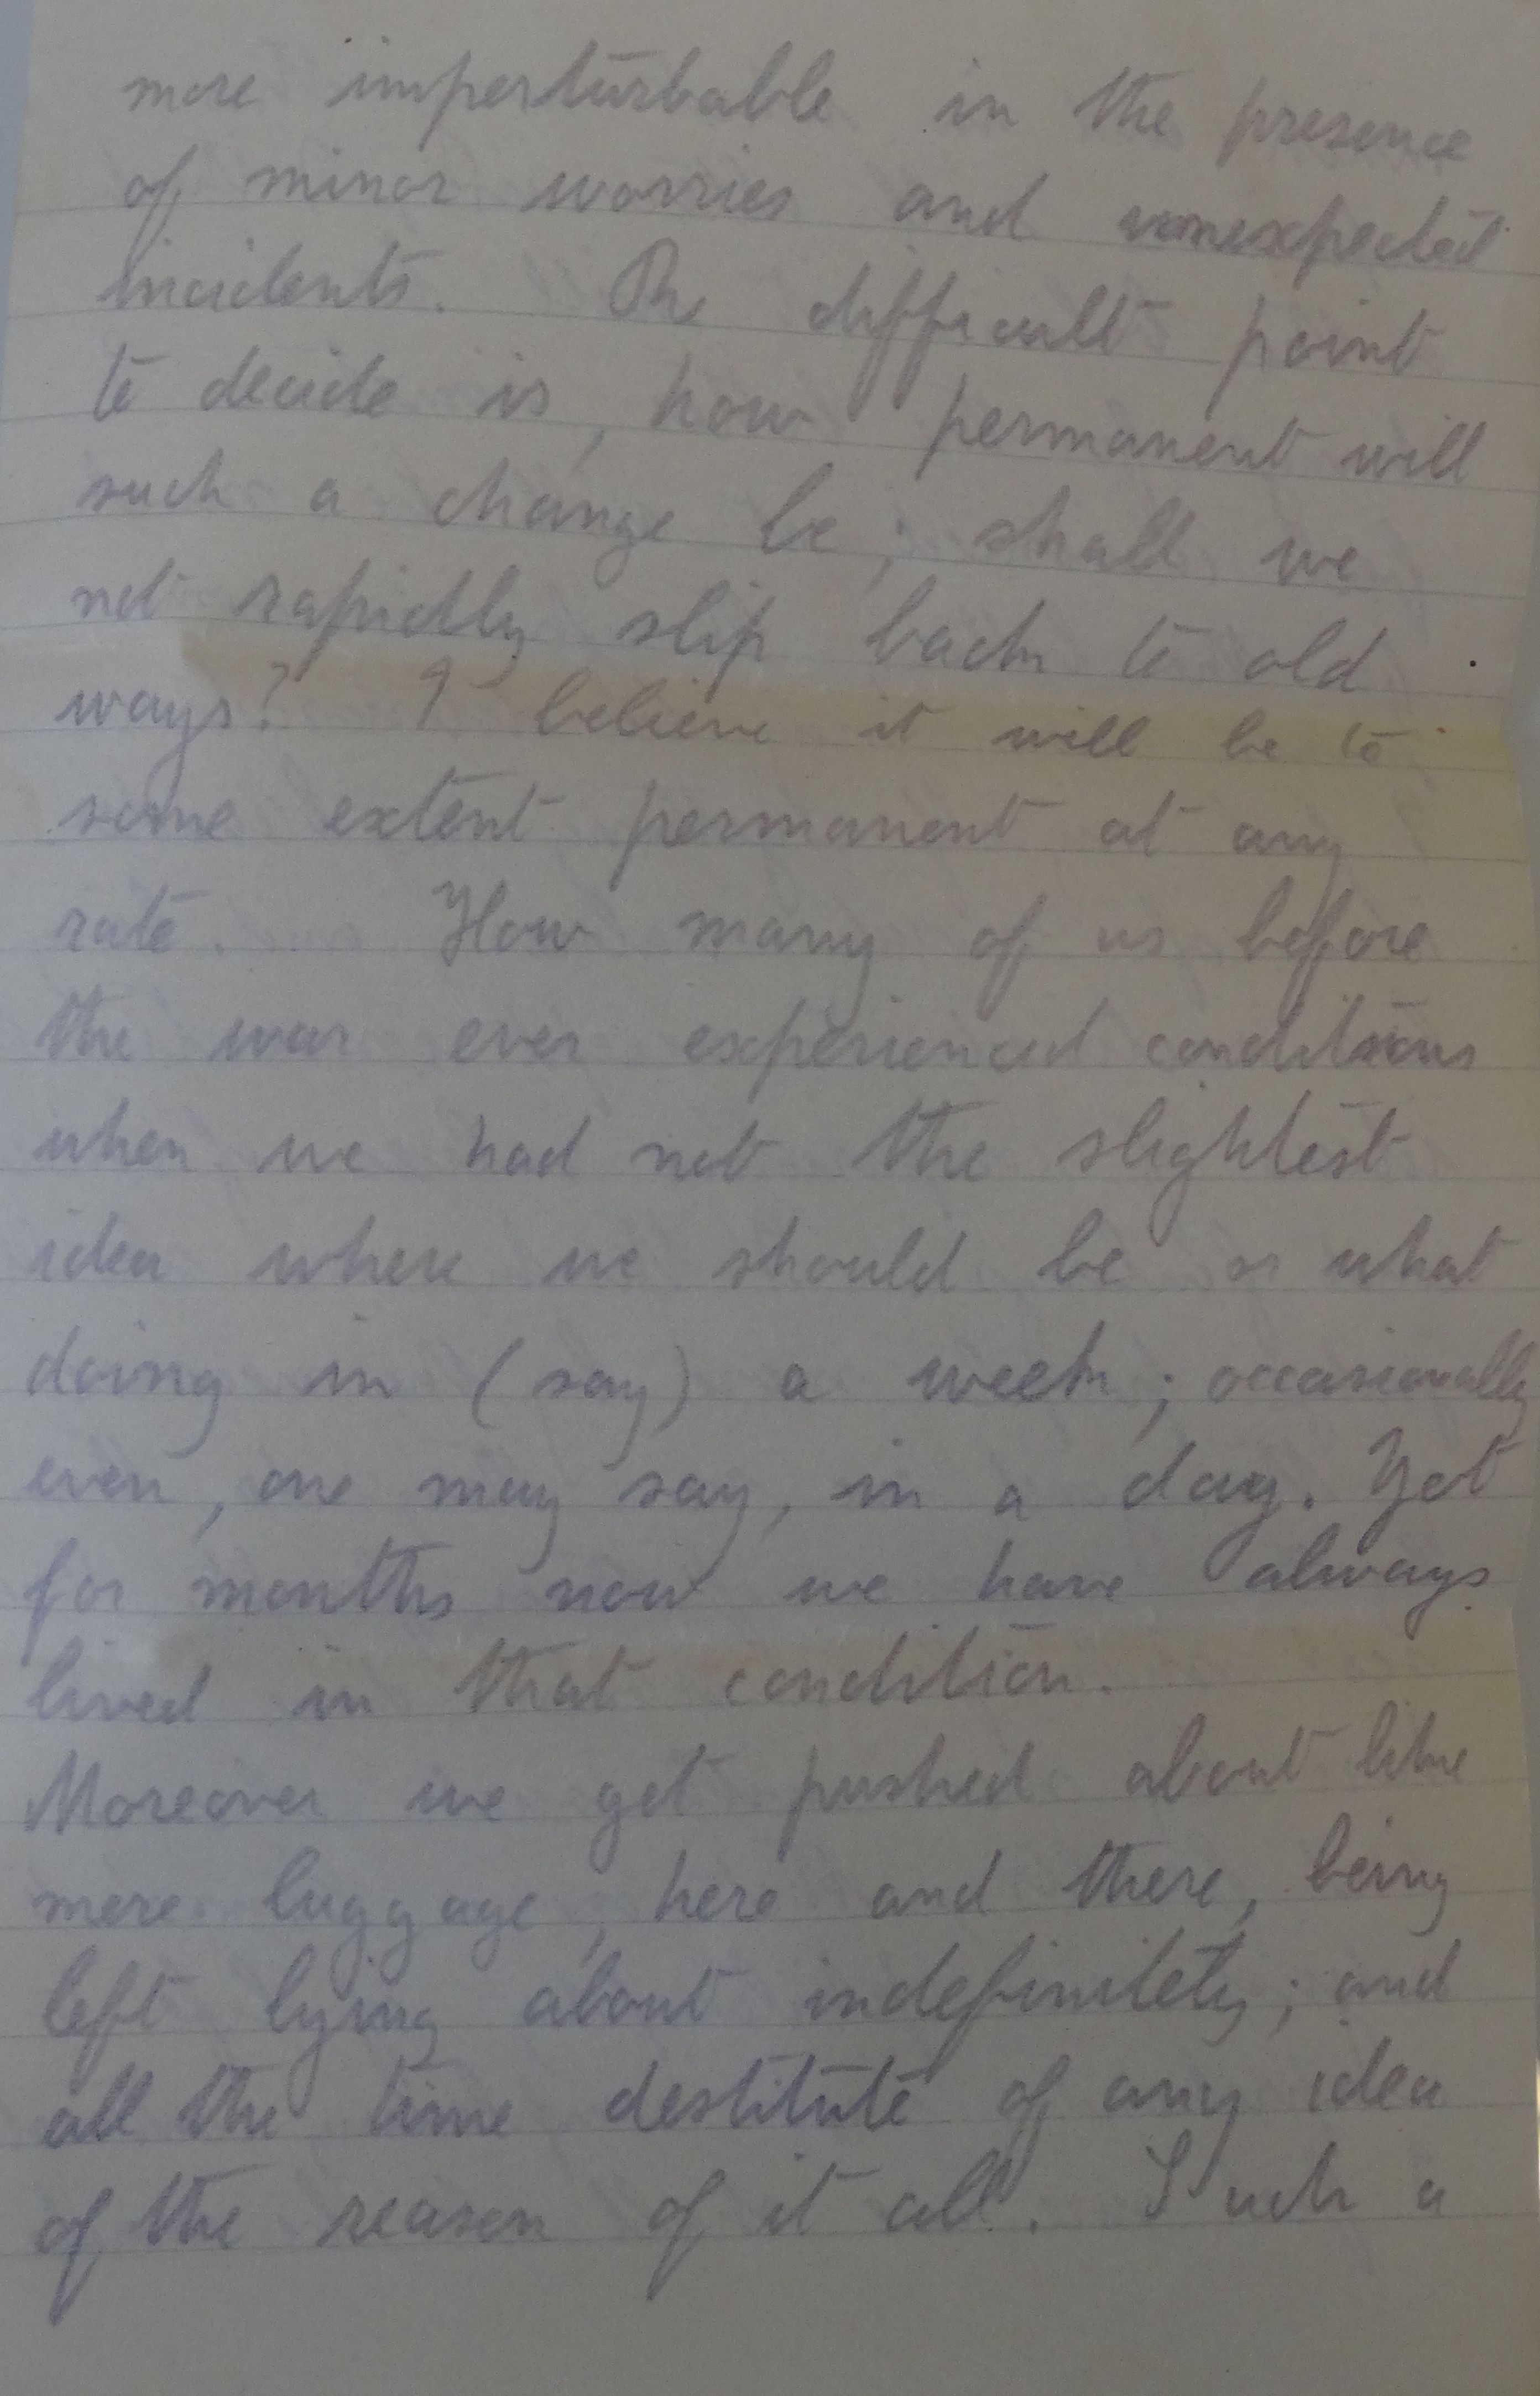 more imperturbable in the presence
of minor worries and unexpected
incidents. The difficult point
to decide is, how permanent will
such a change be; shall we
not rapidly slip back to old
ways? I believe it will be to
some extent permanent at any
rate. How many of us before
the war ever experienced conditions
when we had not the slightest
idea where we should be or what
doing in (say) a week; occasionally
even, one may say, in a day. Yet
for months now we have always
lived in that condition.
Moreover we get pushed about like
mere luggage, here and there, being
left lying about indefinitely; and
all the time destitute of any idea
of the reason of it all. Such a